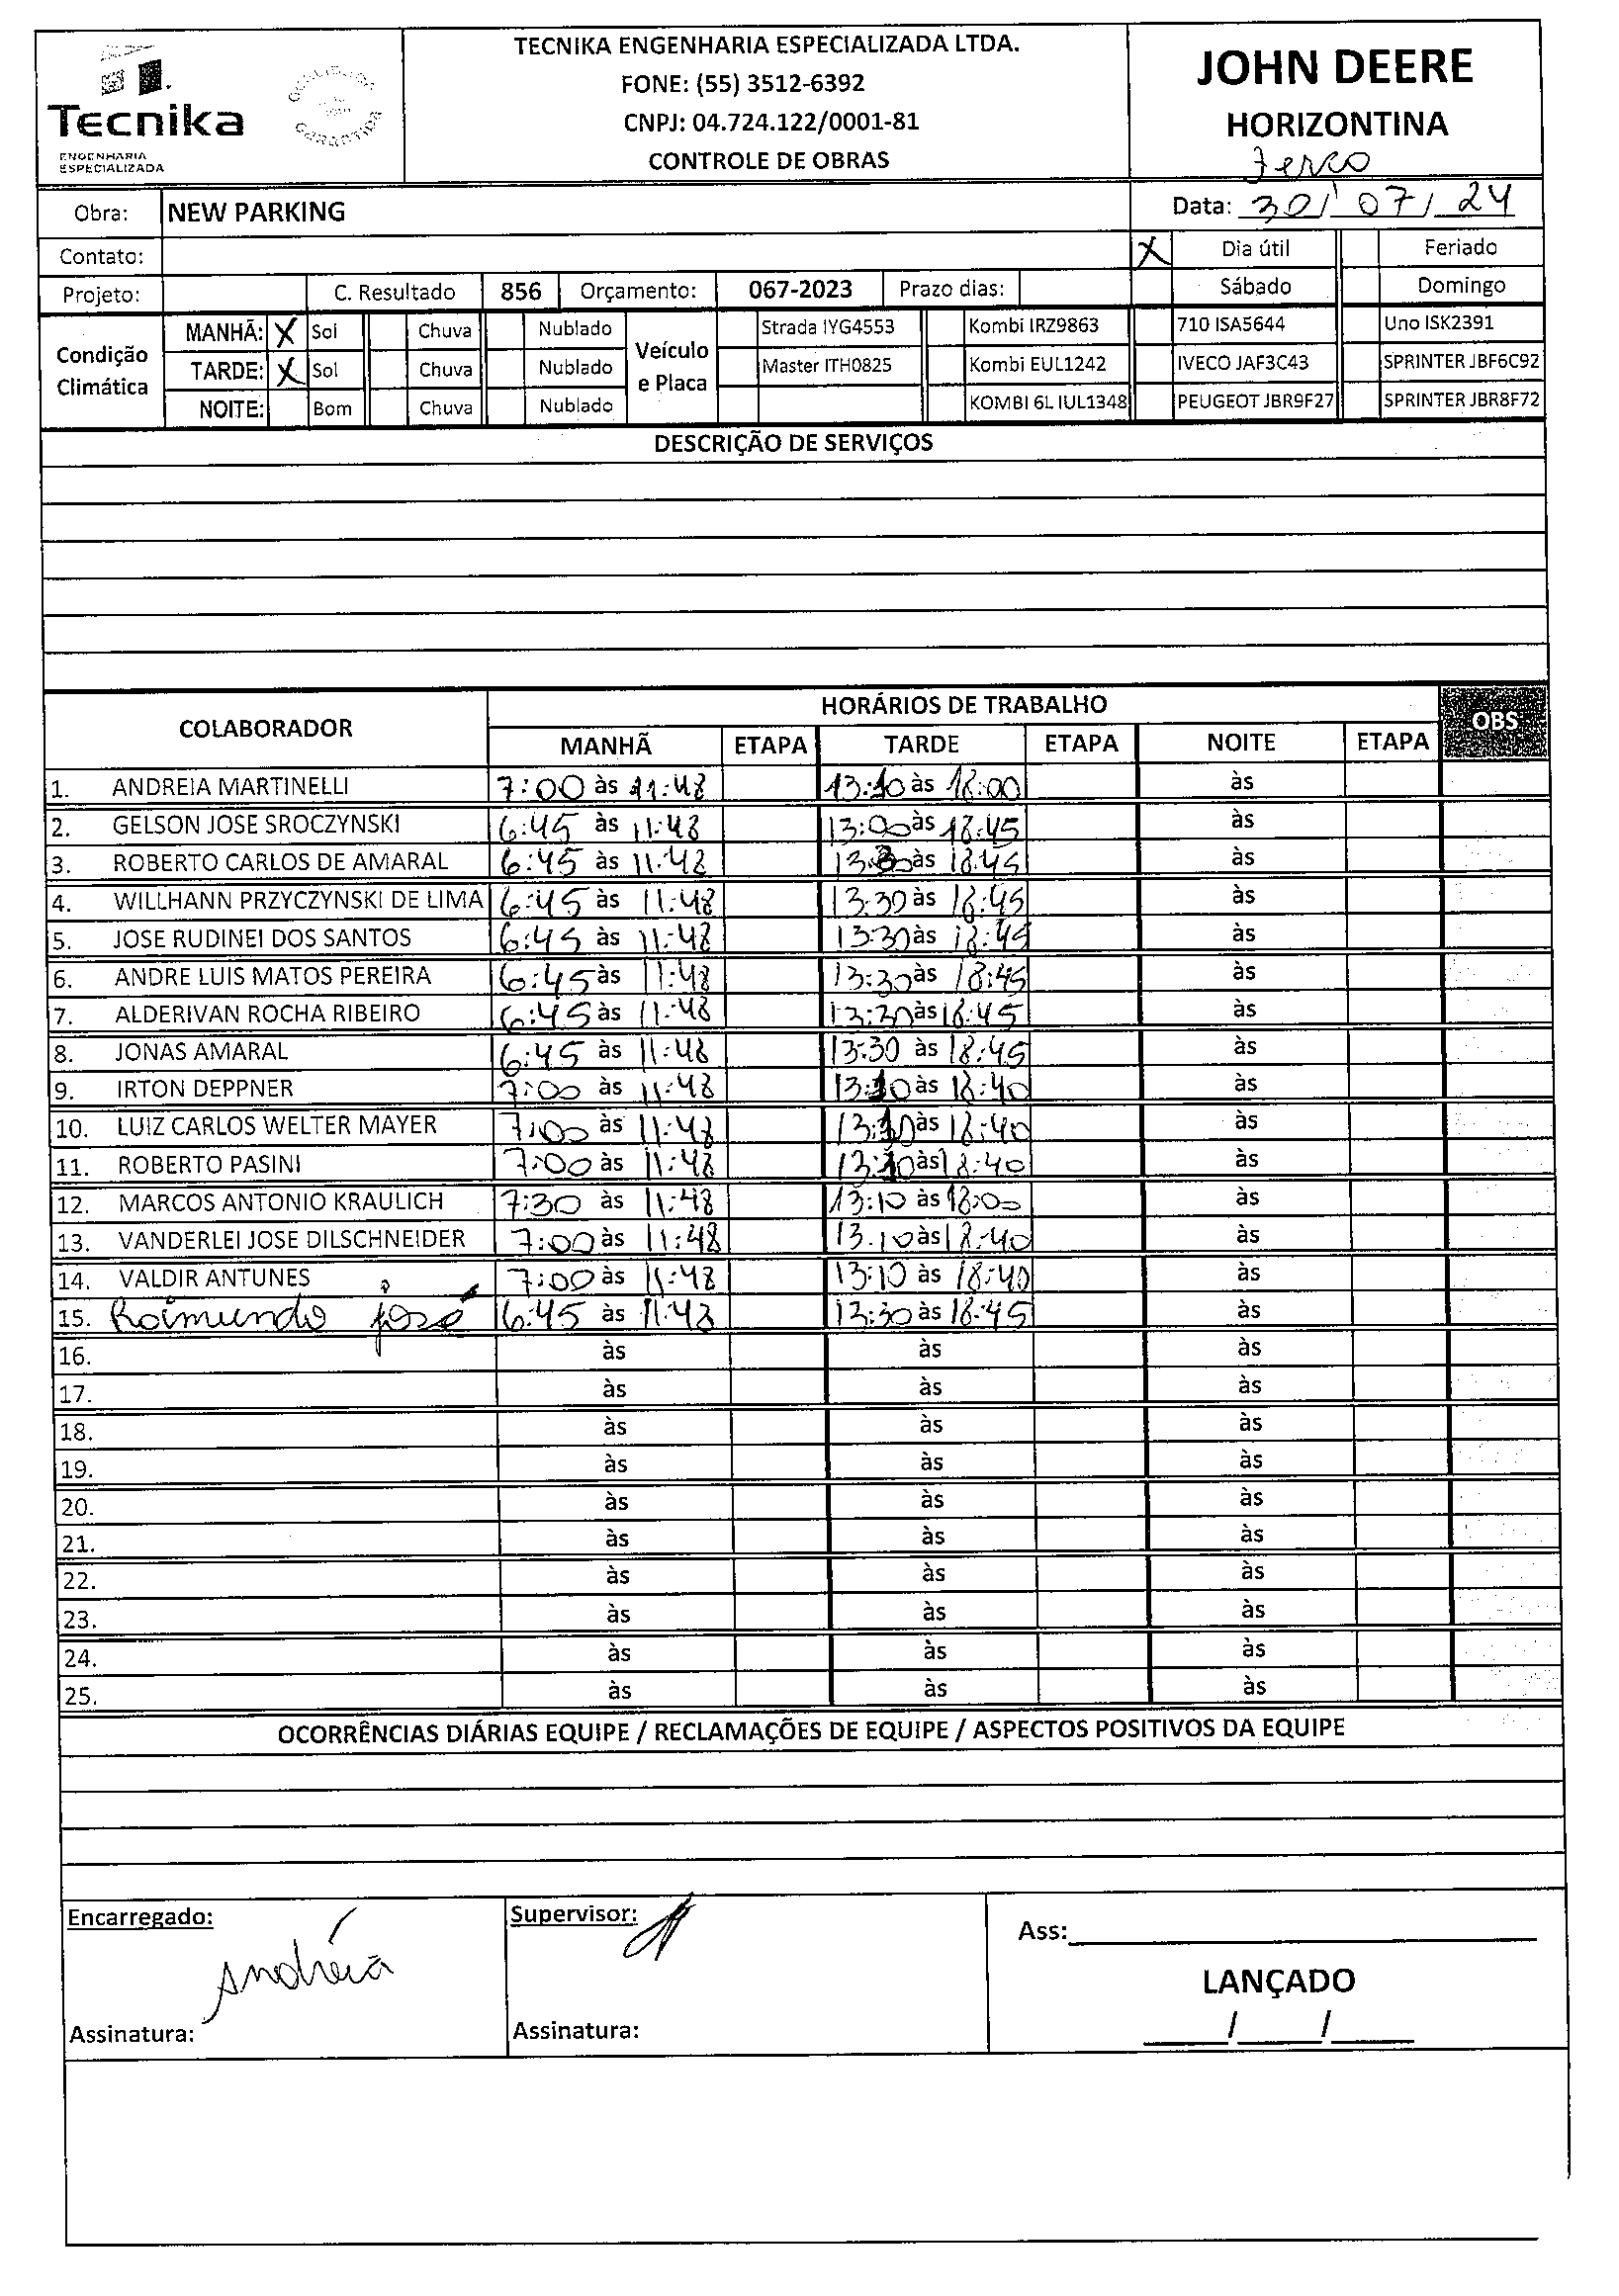 Tecnika
ENGENHARIA
ESPECIALIZADA
TECNIKA ENGENHARIA ESPECIALIZADA LTDA.
FONE: (55) 3512-6392
CNPJ: 04.724.122/0001-81
CONTROLE DE OBRAS
JOHN DEERE
HORIZONTINA
Obra: NEW PARKING Data: 30/07/24
Contato: X Dia útil Feriado
Projeto: C. Resultado 856 Orçamento: 067-2023 Prazo dias: Sábado Domingo
Condição Climática
MANHÃ: X Sol Chuva Nublado
TARDE: X Sol Chuva Nublado
NOITE: Bom Chuva Nublado
Veículo e Placa
Strada IYG4553 Kombi IRZ9863 710 ISA5644 Uno ISK2391
Master ITH0825 Kombi EUL1242 IVECO JAF3C43 SPRINTER JBF6C92
KOMBI 6L IUL1348 PEUGEOT JBR9F27 SPRINTER JBR8F72
DESCRIÇÃO DE SERVIÇOS
COLABORADOR HORÁRIOS DE TRABALHO OBS
MANHÃ ETAPA TARDE ETAPA NOITE ETAPA
1. ANDREIA MARTINELLI 7:00 às 11:48 13:10 às 18:00 às
2. GELSON JOSE SROCZYNSKI 6:45 às 11:48 13:00 às 18:45 às
3. ROBERTO CARLOS DE AMARAL 6:45 às 11:48 13:30 às 18:45 às
4. WILLHANN PRZYCZYNSKI DE LIMA 6:45 às 11:48 13:30 às 18:45 às
5. JOSE RUDINEI DOS SANTOS 6:45 às 11:48 13:30 às 18:45 às
6. ANDRE LUIS MATOS PEREIRA 6:45 às 11:48 13:30 às 18:45 às
7. ALDERIVAN ROCHA RIBEIRO 6:45 às 11:48 13:30 às 18:45 às
8. JONAS AMARAL 6:45 às 11:48 13:30 às 18:45 às
9. IRTON DEPPNER 7:00 às 11:48 13:10 às 18:40 às
10. LUIZ CARLOS WELTER MAYER 7:00 às 11:48 13:10 às 18:40 às
11. ROBERTO PASINI 7:00 às 11:48 13:10 às 18:40 às
12. MARCOS ANTONIO KRAULICH 7:30 às 11:48 13:10 às 18:00 às
13. VANDERLEI JOSE DILSCHNEIDER 7:00 às 11:48 13:10 às 18:40 às
14. VALDIR ANTUNES 7:00 às 11:48 13:10 às 18:40 às
15. Raimundo josé 6:45 às 11:48 13:30 às 18:45 às
16. às às às
17. às às às
18. às às às
19. às às às
20. às às às
21. às às às
22. às às às
23. às às às
24. às às às
25. às às às
OCORRÊNCIAS DIÁRIAS EQUIPE / RECLAMAÇÕES DE EQUIPE / ASPECTOS POSITIVOS DA EQUIPE
Encarregado:
Andréia
Assinatura:
Supervisor:
Assinatura:
Ass:
LANÇADO
/ /